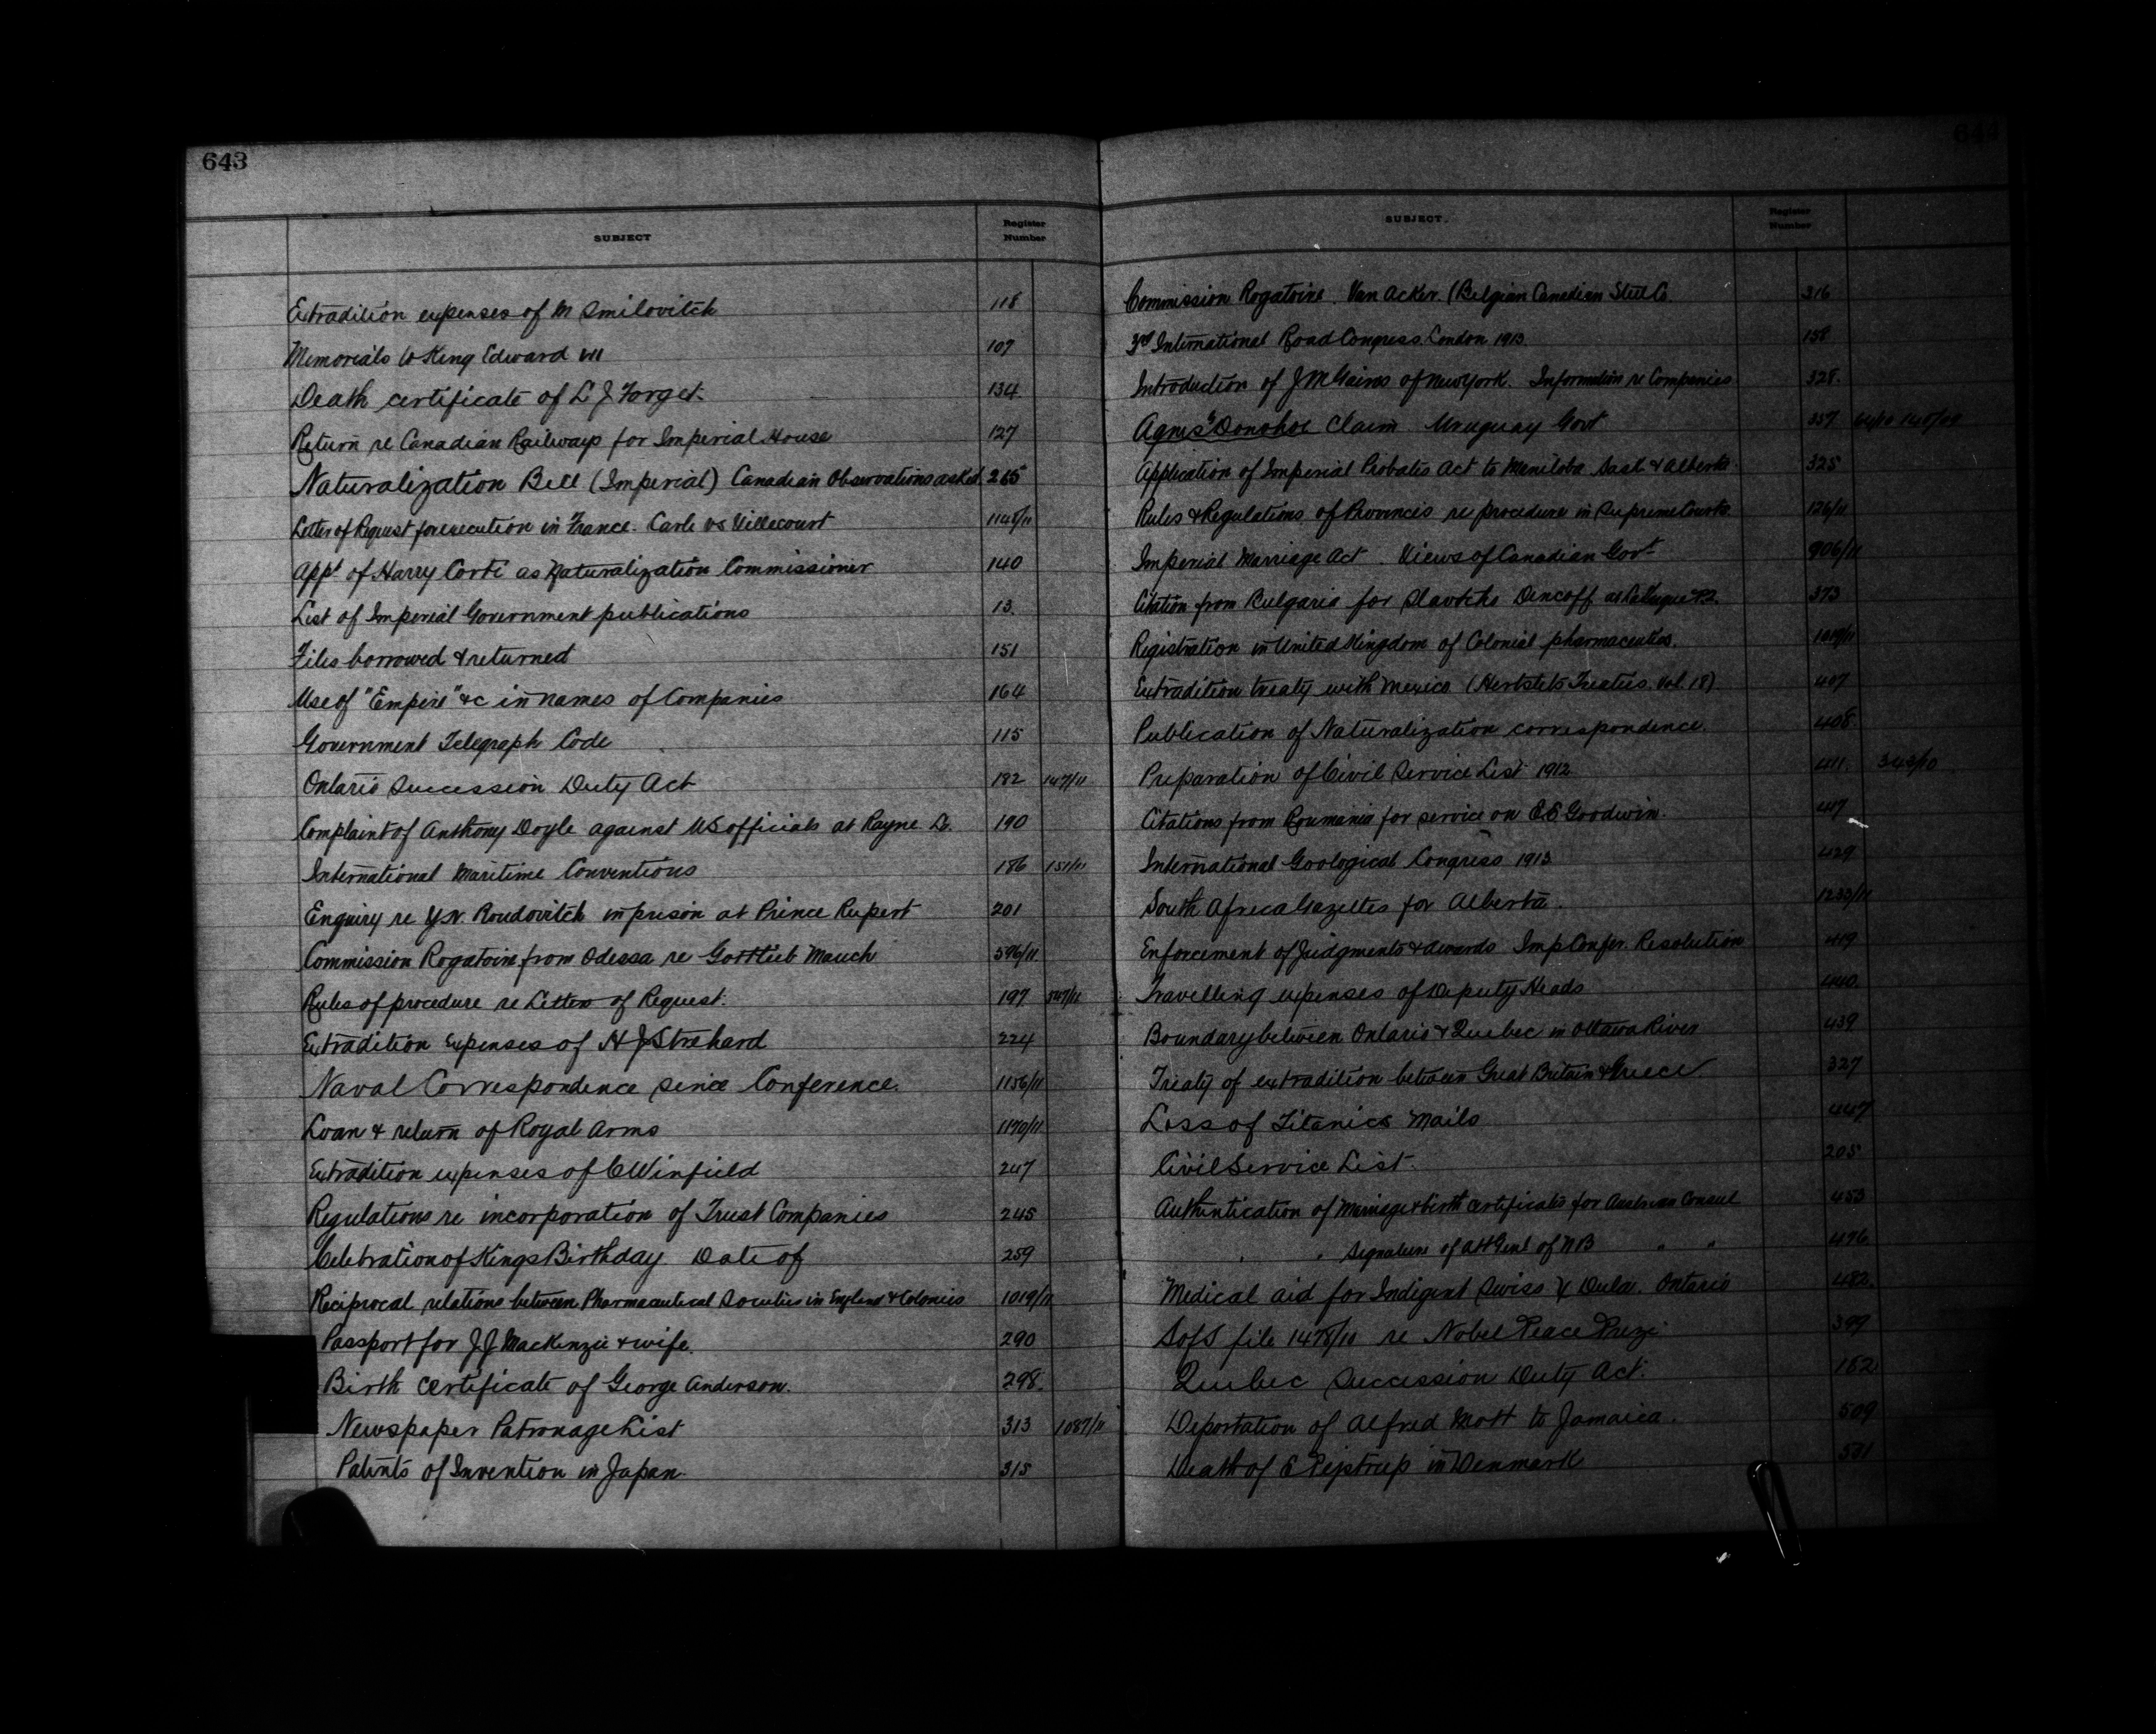 643
SUBJECT Register Number
Extradition expenses of M Smilovitch 118
Memorials to King Edward VII 107
Death certificate of L J Forget. 134
Return re Canadian Railways for Imperial House 127
Naturalization Bill (Imperial) Canadian Observations asked. 265
Letter of Request for execution in France. Carle vs Villecourt 1148/11
App't of Harry Corti as Naturalization Commissioner 140
List of Imperial Government publications 13
Files borrowed & returned 151
Use of "Empire" &c in names of Companies 164
Government Telegraph Code 115
Ontario Succession Duty Act 182 147/11
Complaint of Anthony Doyle against US officials at Rayne La. 190
International Maritime Conventions 186 151/11
Enquiry re Y.N. Roudovitch in prison at Prince Rupert 201
Commission Rogatoire from Odessa re Gottlieb Mauch 596/11
Rules of procedure re Letters of Request. 197
Extradition Expenses of H J Strehard 224
Naval Correspondence since Conference. 1156/11
Loan & return of Royal Arms 1170/11
Extradition expenses of C Winfield 247
Regulations re incorporation of Trust Companies 245
Celebration of Kings Birthday Date of 259
Reciprocal relations between Pharmaceutical Societies in England & Colonies 1019/11
Passport for J J MacKenzie & wife. 290
Birth certificate of George Anderson. 298.
Newspaper Patronage List 313 1087/11
Patents of Invention in Japan. 315
644
SUBJECT. Register Number
Commission Rogatoire. Van Acker (Belgian Canadian Steel Co. 316
3rd International Road Congress London 1913. 158
Introduction of J M Gaines of New York. Information re Companies 328.
Agnes Donohoe Claim Uruguay Govt 337
Application of Imperial Probates Act to Manitoba Sask & Alberta. 325
Rules & Regulations of Provinces re procedure in Supreme Courts 126/11
Imperial Marriage Act. Views of Canadian Gov't 906/11
Citation from Bulgaria for Slavtcho Dencoff at 373
Registration in United Kingdom of Colonial pharmaceutics. 1019/11
Extradition treaty with Mexico (Hertslets Treaties. Vol. 18) 407
Publication of Naturalization correspondence. 408
Preparation of Civil Service List 1912 411. 343/10
Citations from Roumania for service on E E Goodwin. 417
International Geological Congress 1913 429
South Africa Gazettes for Alberta. 1233/11
Enforcement of Judgments & Awards Imp Confer. Resolution 419
Travelling expenses of Deputy Heads 440
Boundary between Ontario & Quebec in Ottawa River 439
Treaty of extradition between Great Britain & Greece 327
Loss of Titanics Mails 447
Civil Service List. 205
Authentication of Marriage & birth certificates for Austrian Consul 453
" " Signature of Att Genl of NB " " 476
Medical aid for Indigent Swiss Ontario 482.
S of S file 1478/10 re Nobel Peace Prize 399
Quebec Succession Duty Act. 182
Deportation of Alfred Mott to Jamaica. 509
Death of E Pejstrup in Denmark 531